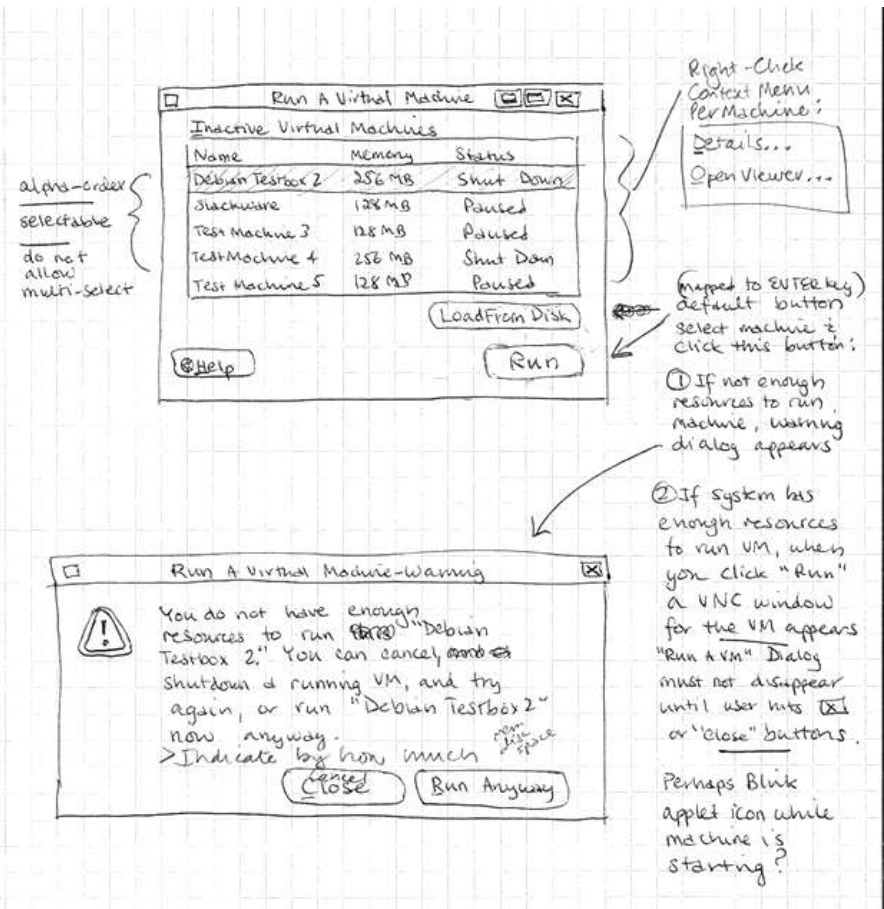 Run A Virtual Machine
Inactive Virtual Machines
Name Memory Status
Debian Testbox 2 256 MB Shut Down
Slackware 128 MB Paused
Test Machine 3 128 MB Paused
Test Machine 4 256 MB Shut Down
Test Machine 5 128 MB Paused
Load From Disk
Help
Run
alpha-order
selectable
do not
allow
multi-select
Right-Click
Context Menu
Per Machine:
Details...
Open Viewer...
(mapped to ENTER key)
default button
select machine &
click this button:
① If not enough
resources to run
machine, warning
dialog appears
② If system has
enough resources
to run VM, when
you click "Run"
a VNC window
for the VM appears
"Run A VM" Dialog
must not disappear
until user hits X
or "close" buttons.
Perhaps Blink
applet icon while
machine is
starting?
Run A Virtual Machine-Warning
!
You do not have enough
resources to run "Debian
Testbox 2." You can cancel,
shutdown a running VM, and try
again, or run "Debian Testbox 2"
now anyway.
>Indicate by how much
mem
disc
space
Cancel
Close
Run Anyway